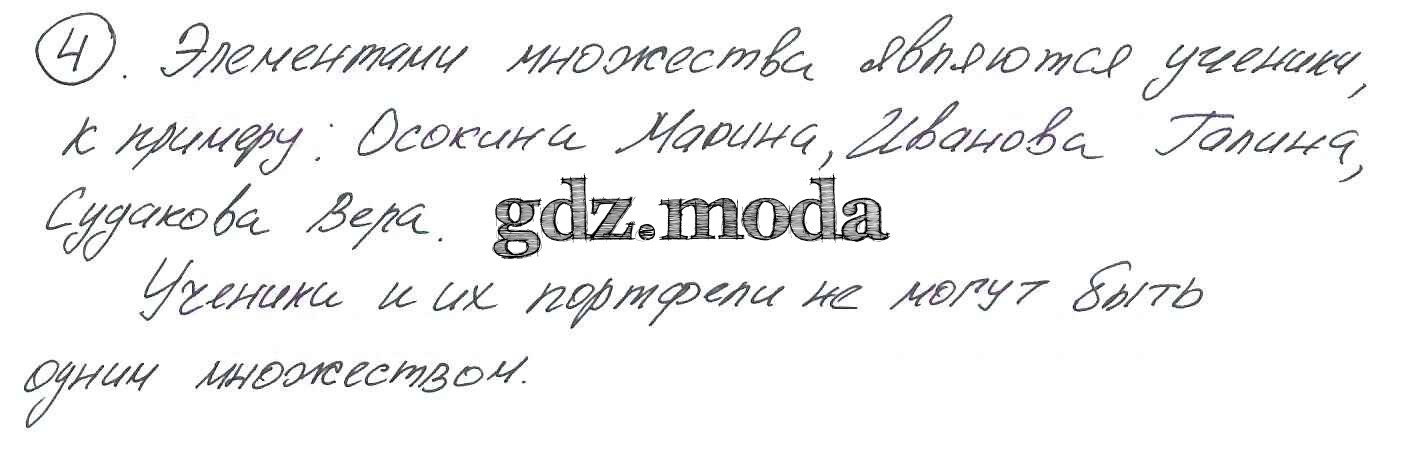 4. Элементами множества являются ученики,
к примеру: Осокина Марина, Иванова Галина,
Судакова Вера. gdz.moda
Ученики и их портфели не могут быть
одним множеством.